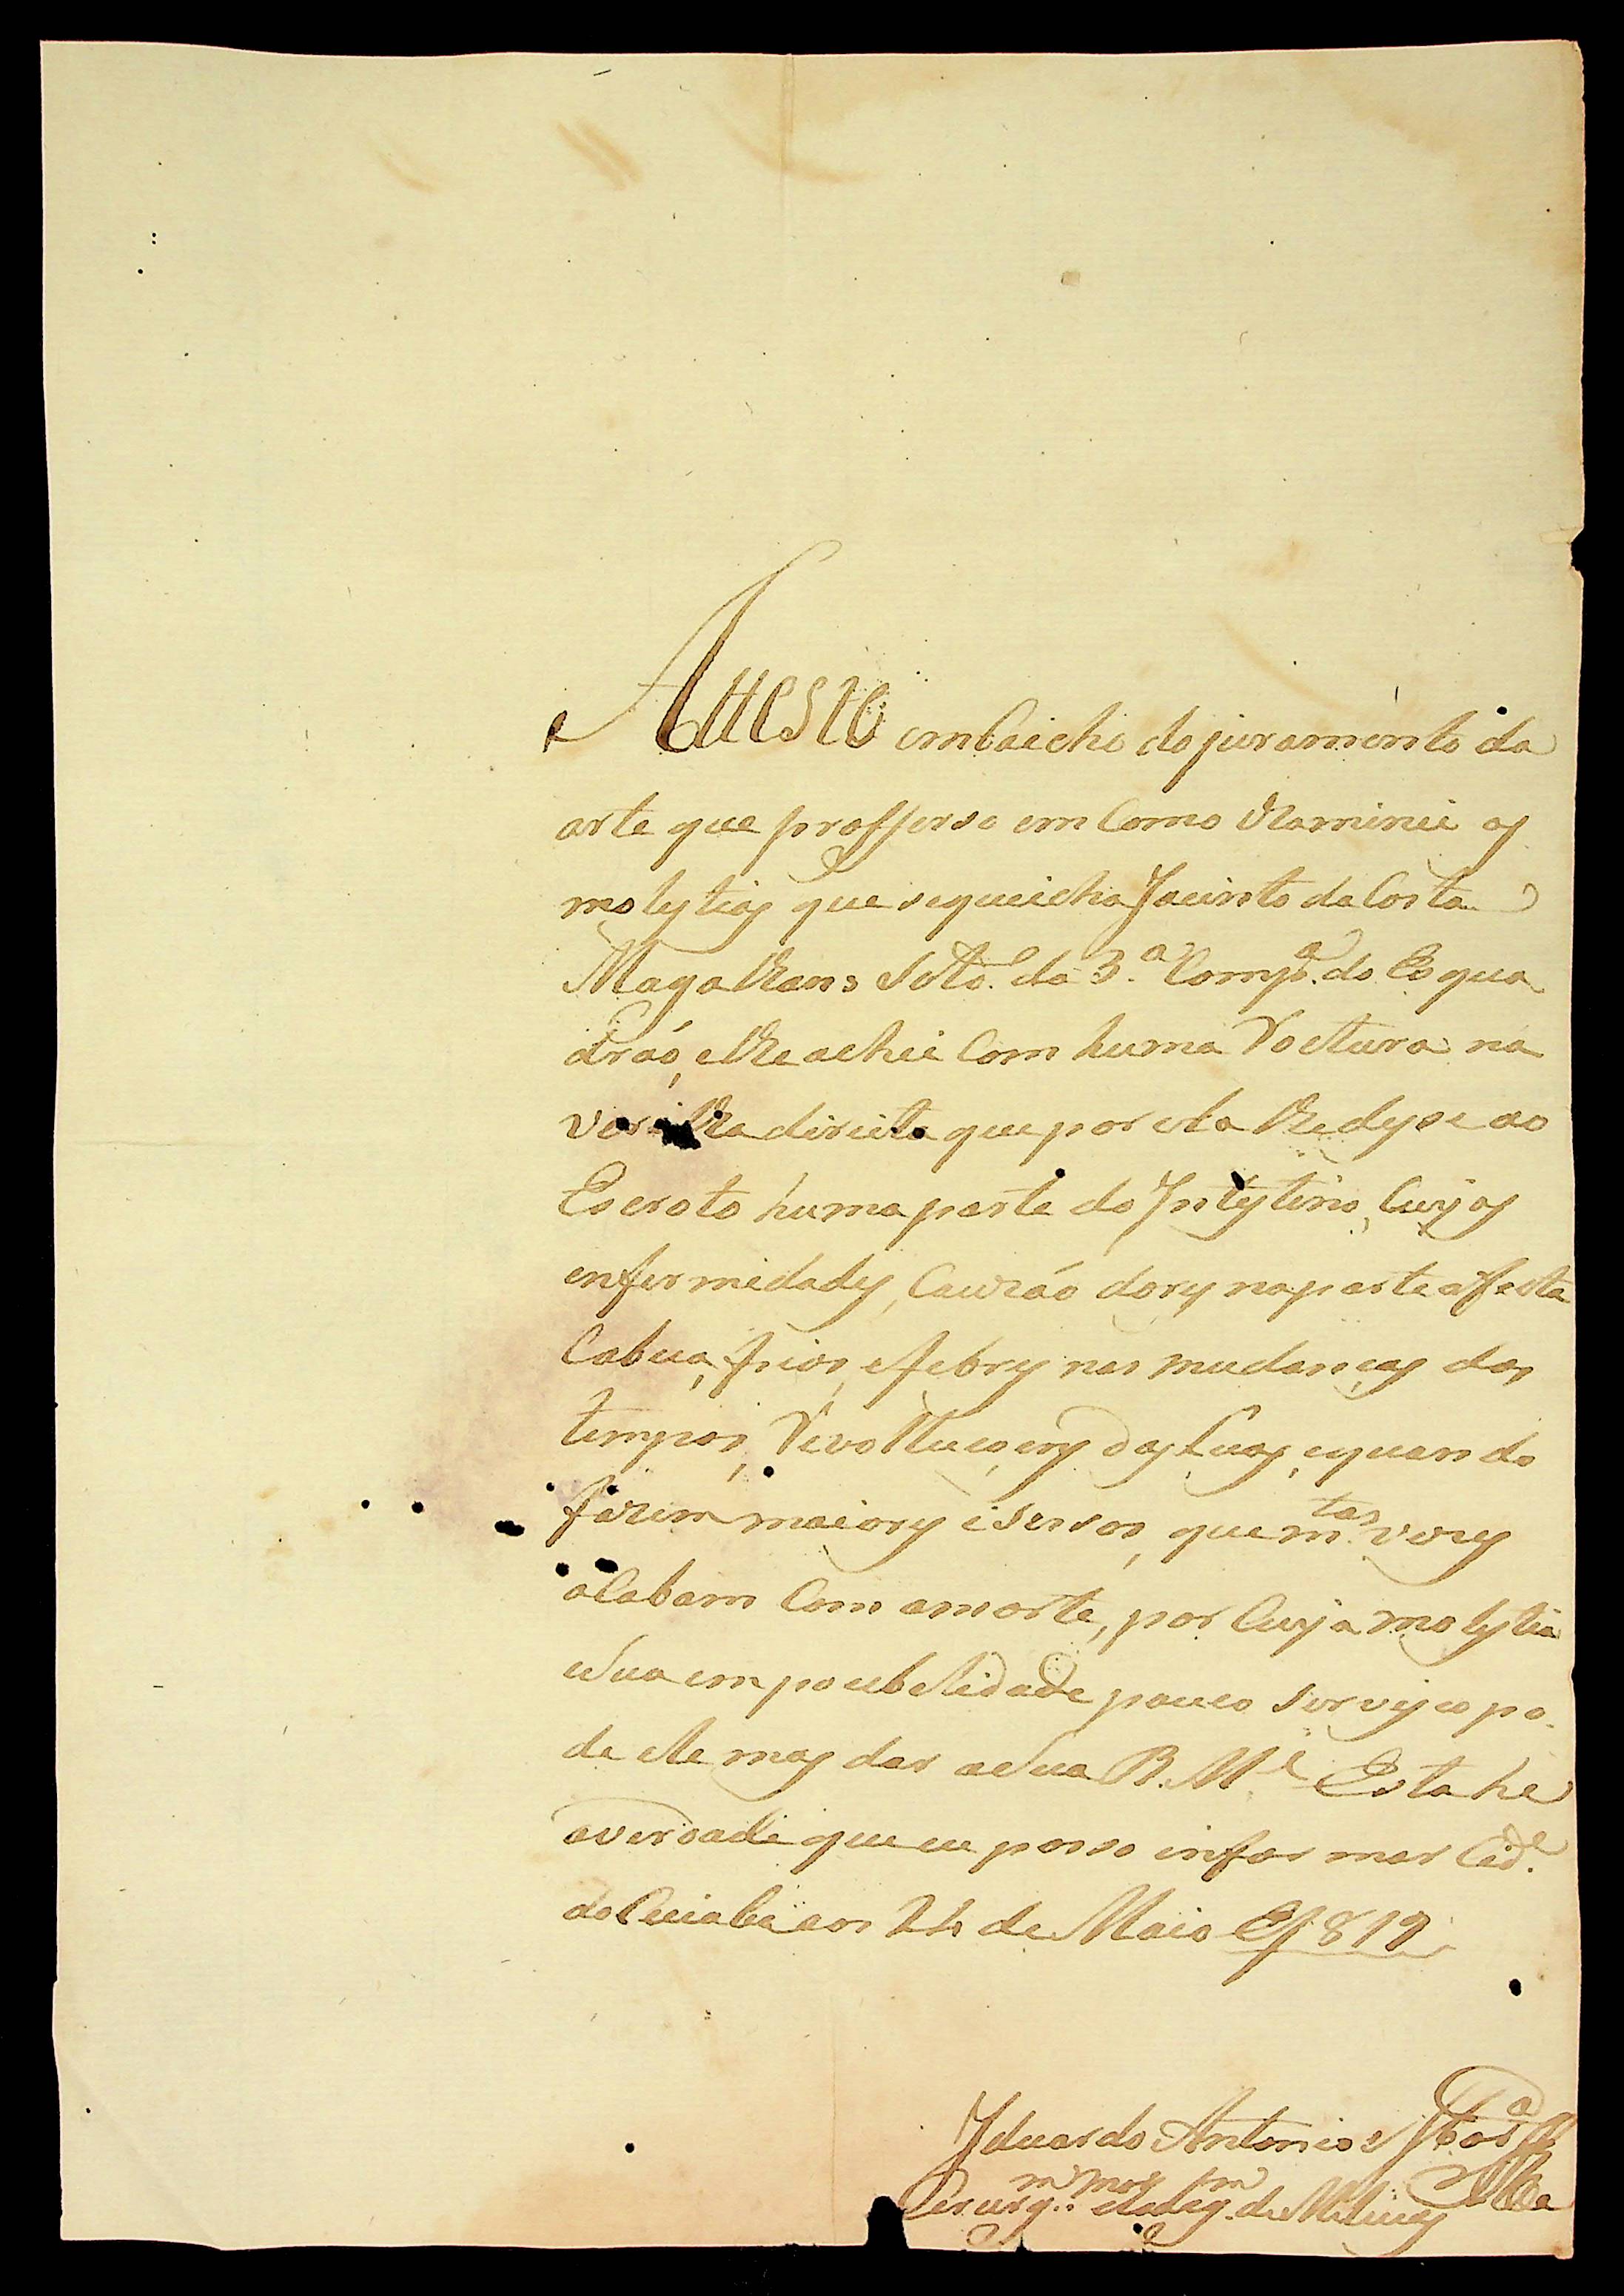 Attesto embaicho do juramento da
arte que profferso em como Examinei as
molestias que se queicha Jacinto da Costa
Magalhans Sold.o da 3.a Comp.a do Esqua
draó, e lhe achei Com huma Roctura na
verilha direita que por ela lhe desse ao
Escroto huma parte do Intestino, Cujas
enfermidades, Cauzáo dores na parte affecta
Cabeça, frios, e febres nas mudanças dos
tempos, Revolluçoens das Luas, e quando
fazem maiores eserços, que m.tas vezes
acabam Com a morte, por Cuja molestia
e Sua empocibelidade pouco Serviço po
de ele mas dar a Sua R. M.e Esta he
a verdade que eu posso informar Cid.e
do Cuiabá aos 24 de Maio de 1819
Iduardo Antonio
Cerurg.m mor de Milicias